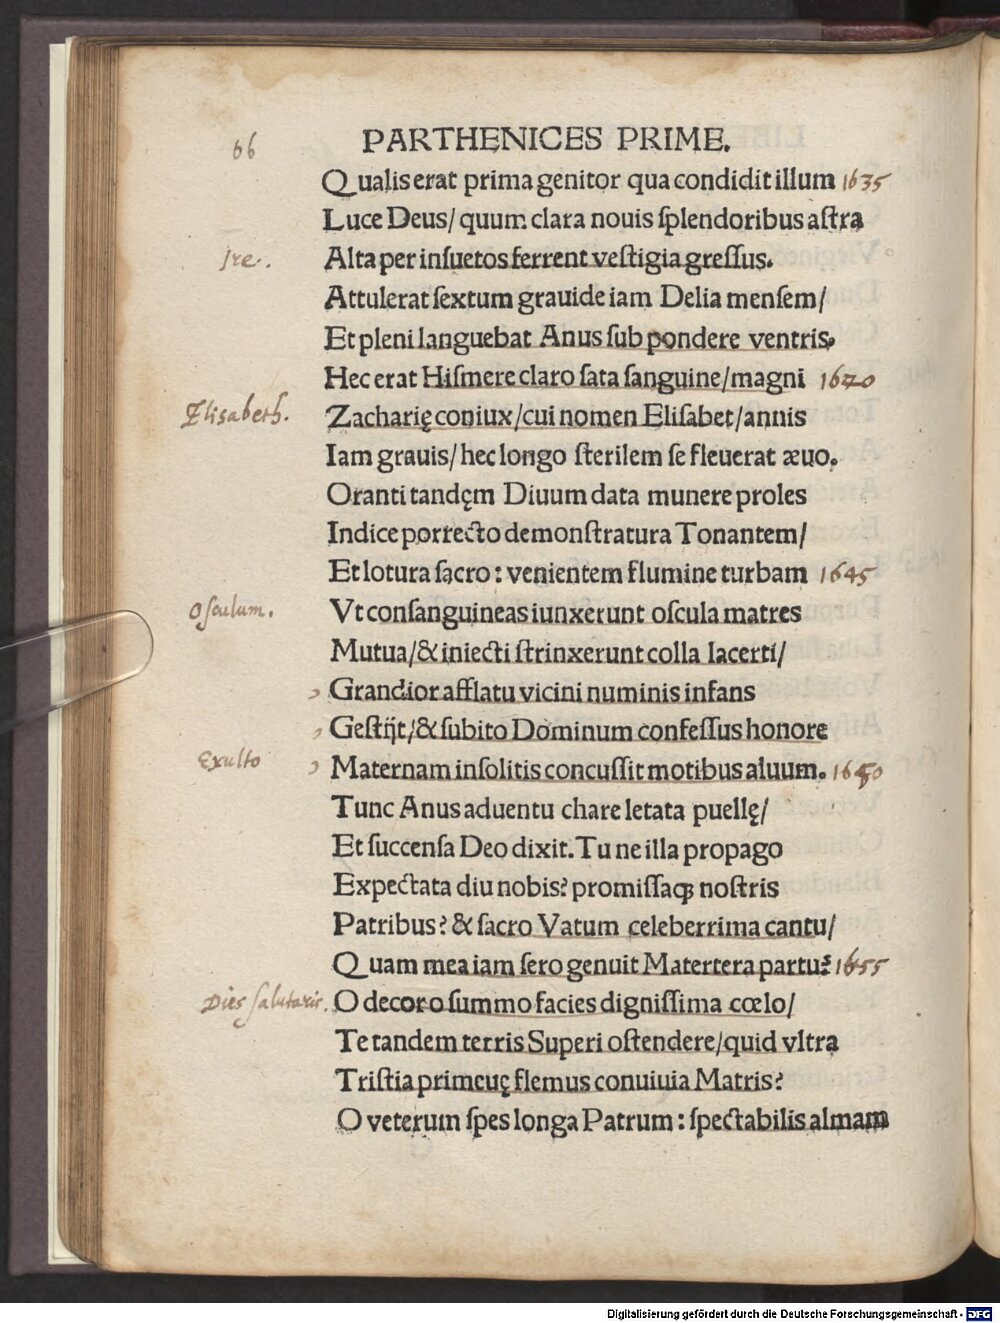 66 PARTHENICES PRIME.
Qualis erat prima genitor qua condidit illum 1635
Luce Deus/ quum clara nouis ſplendoribus aſtra
Ire. Alta per inſuetos ferrent veſtigia greſſus.
Attulerat ſextum grauide iam Delia menſem/
Et pleni languebat Anus ſub pondere ventris.
Hec erat Hiſmere claro ſata ſanguine/magni 1640
Elisabeth. Zacharię coniux/cui nomen Eliſabet/annis
Iam grauis/hec longo ſterilem ſe fleuerat æuo.
Oranti tandęm Diuum data munere proles
Indice porrecto demonſtratura Tonantem/
Et lotura ſacro: venientem flumine turbam 1645
Oſculum. Vt conſanguineas iunxerunt oſcula matres
Mutua/& iniecti ſtrinxerunt colla lacerti/
Grandior afflatu vicini numinis infans
Geſtijt/& ſubito Dominum confeſſus honore
Exulto Maternam inſolitis concuſſit motibus aluum. 1650
Tunc Anus aduentu chare letata puellę/
Et ſuccenſa Deo dixit. Tu ne illa propago
Expectata diu nobis? promiſſaqꝫ noſtris
Patribus? & ſacro Vatum celeberrima cantu/
Quam mea iam ſero genuit Matertera partu? 1655
Dies ſalutaris. O decor o ſummo facies digniſſima cœlo/
Te tandem terris Superi oſtendere/quid vltra
Triſtia primeuę flemus conuiuia Matris?
O veterum ſpes longa Patrum: ſpectabilis almam
Digitalisierung gefördert durch die Deutsche Forschungsgemeinschaft - DFG